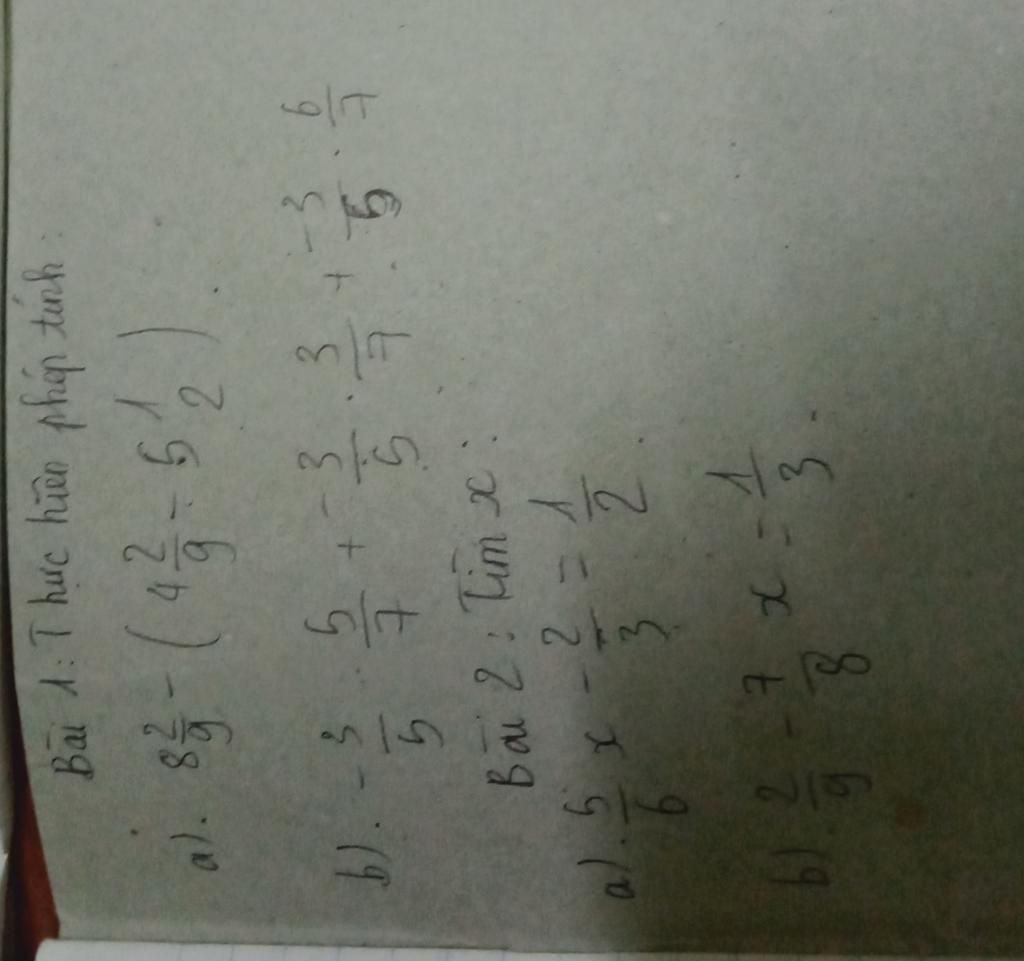 Bài 1: Thực hiện phép tính:
a). 8 2/9 - ( 4 2/9 - 5 1/2 )
b). -3/5 . 5/7 + -3/5 . 3/7 + -3/5 . 6/7
Bài 2: Tìm x:
a). 5/6 x - 2/3 = 1/2
b) 2/9 - 7/8 x = 1/3.